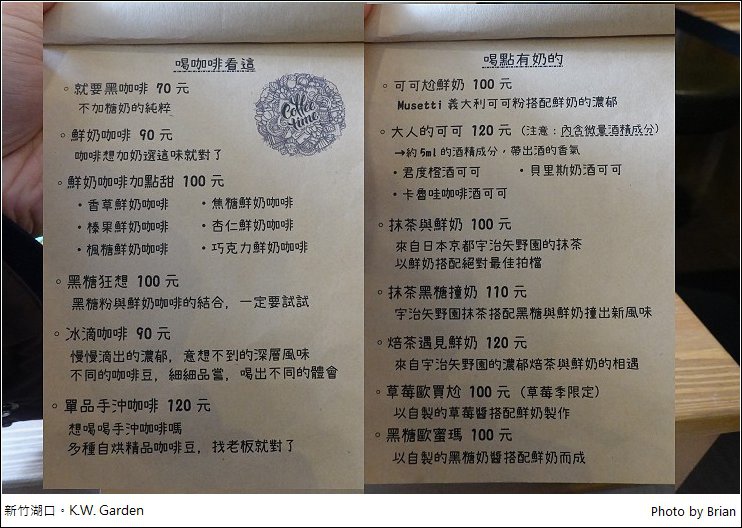 喝咖啡看這
。就要黑咖啡 70 元
不加糖奶的純粹
Coffee
time
。鮮奶咖啡 90 元
咖啡想加奶選這味就對了
。鮮奶咖啡加點甜 100 元
・香草鮮奶咖啡 ・焦糖鮮奶咖啡
・榛果鮮奶咖啡 ・杏仁鮮奶咖啡
・楓糖鮮奶咖啡 ・巧克力鮮奶咖啡
。黑糖狂想 100 元
黑糖粉與鮮奶咖啡的結合, 一定要試試
。冰滴咖啡 90 元
慢慢滴出的濃郁, 意想不到的深層風味
不同的咖啡豆, 細細品嘗, 喝出不同的體會
。單品手沖咖啡 120 元
想喝喝手沖咖啡嗎
多種自烘精品咖啡豆, 找老板就對了
喝點有奶的
。可可尬鮮奶 100 元
Musetti 義大利可可粉搭配鮮奶的濃郁
。大人的可可 120 元 (注意:內含微量酒精成分)
→約5ml的酒精成分, 帶出酒的香氣
・君度橙酒可可 ・貝里斯奶酒可可
・卡魯哇咖啡酒可可
。抹茶與鮮奶 100 元
來自日本京都宇治矢野園的抹茶
以鮮奶搭配絕對最佳拍檔
。抹茶黑糖撞奶 110 元
宇治矢野園抹茶搭配黑糖與鮮奶撞出新風味
。焙茶遇見鮮奶 120 元
來自宇治矢野園的濃郁焙茶與鮮奶的相遇
。草莓歐買尬 100 元 (草莓季限定)
以自製的草莓醬搭配鮮奶製作
。黑糖歐蜜瑪 100 元
以自製的黑糖奶醬搭配鮮奶而成
新竹湖口。K.W. Garden
Photo by Brian